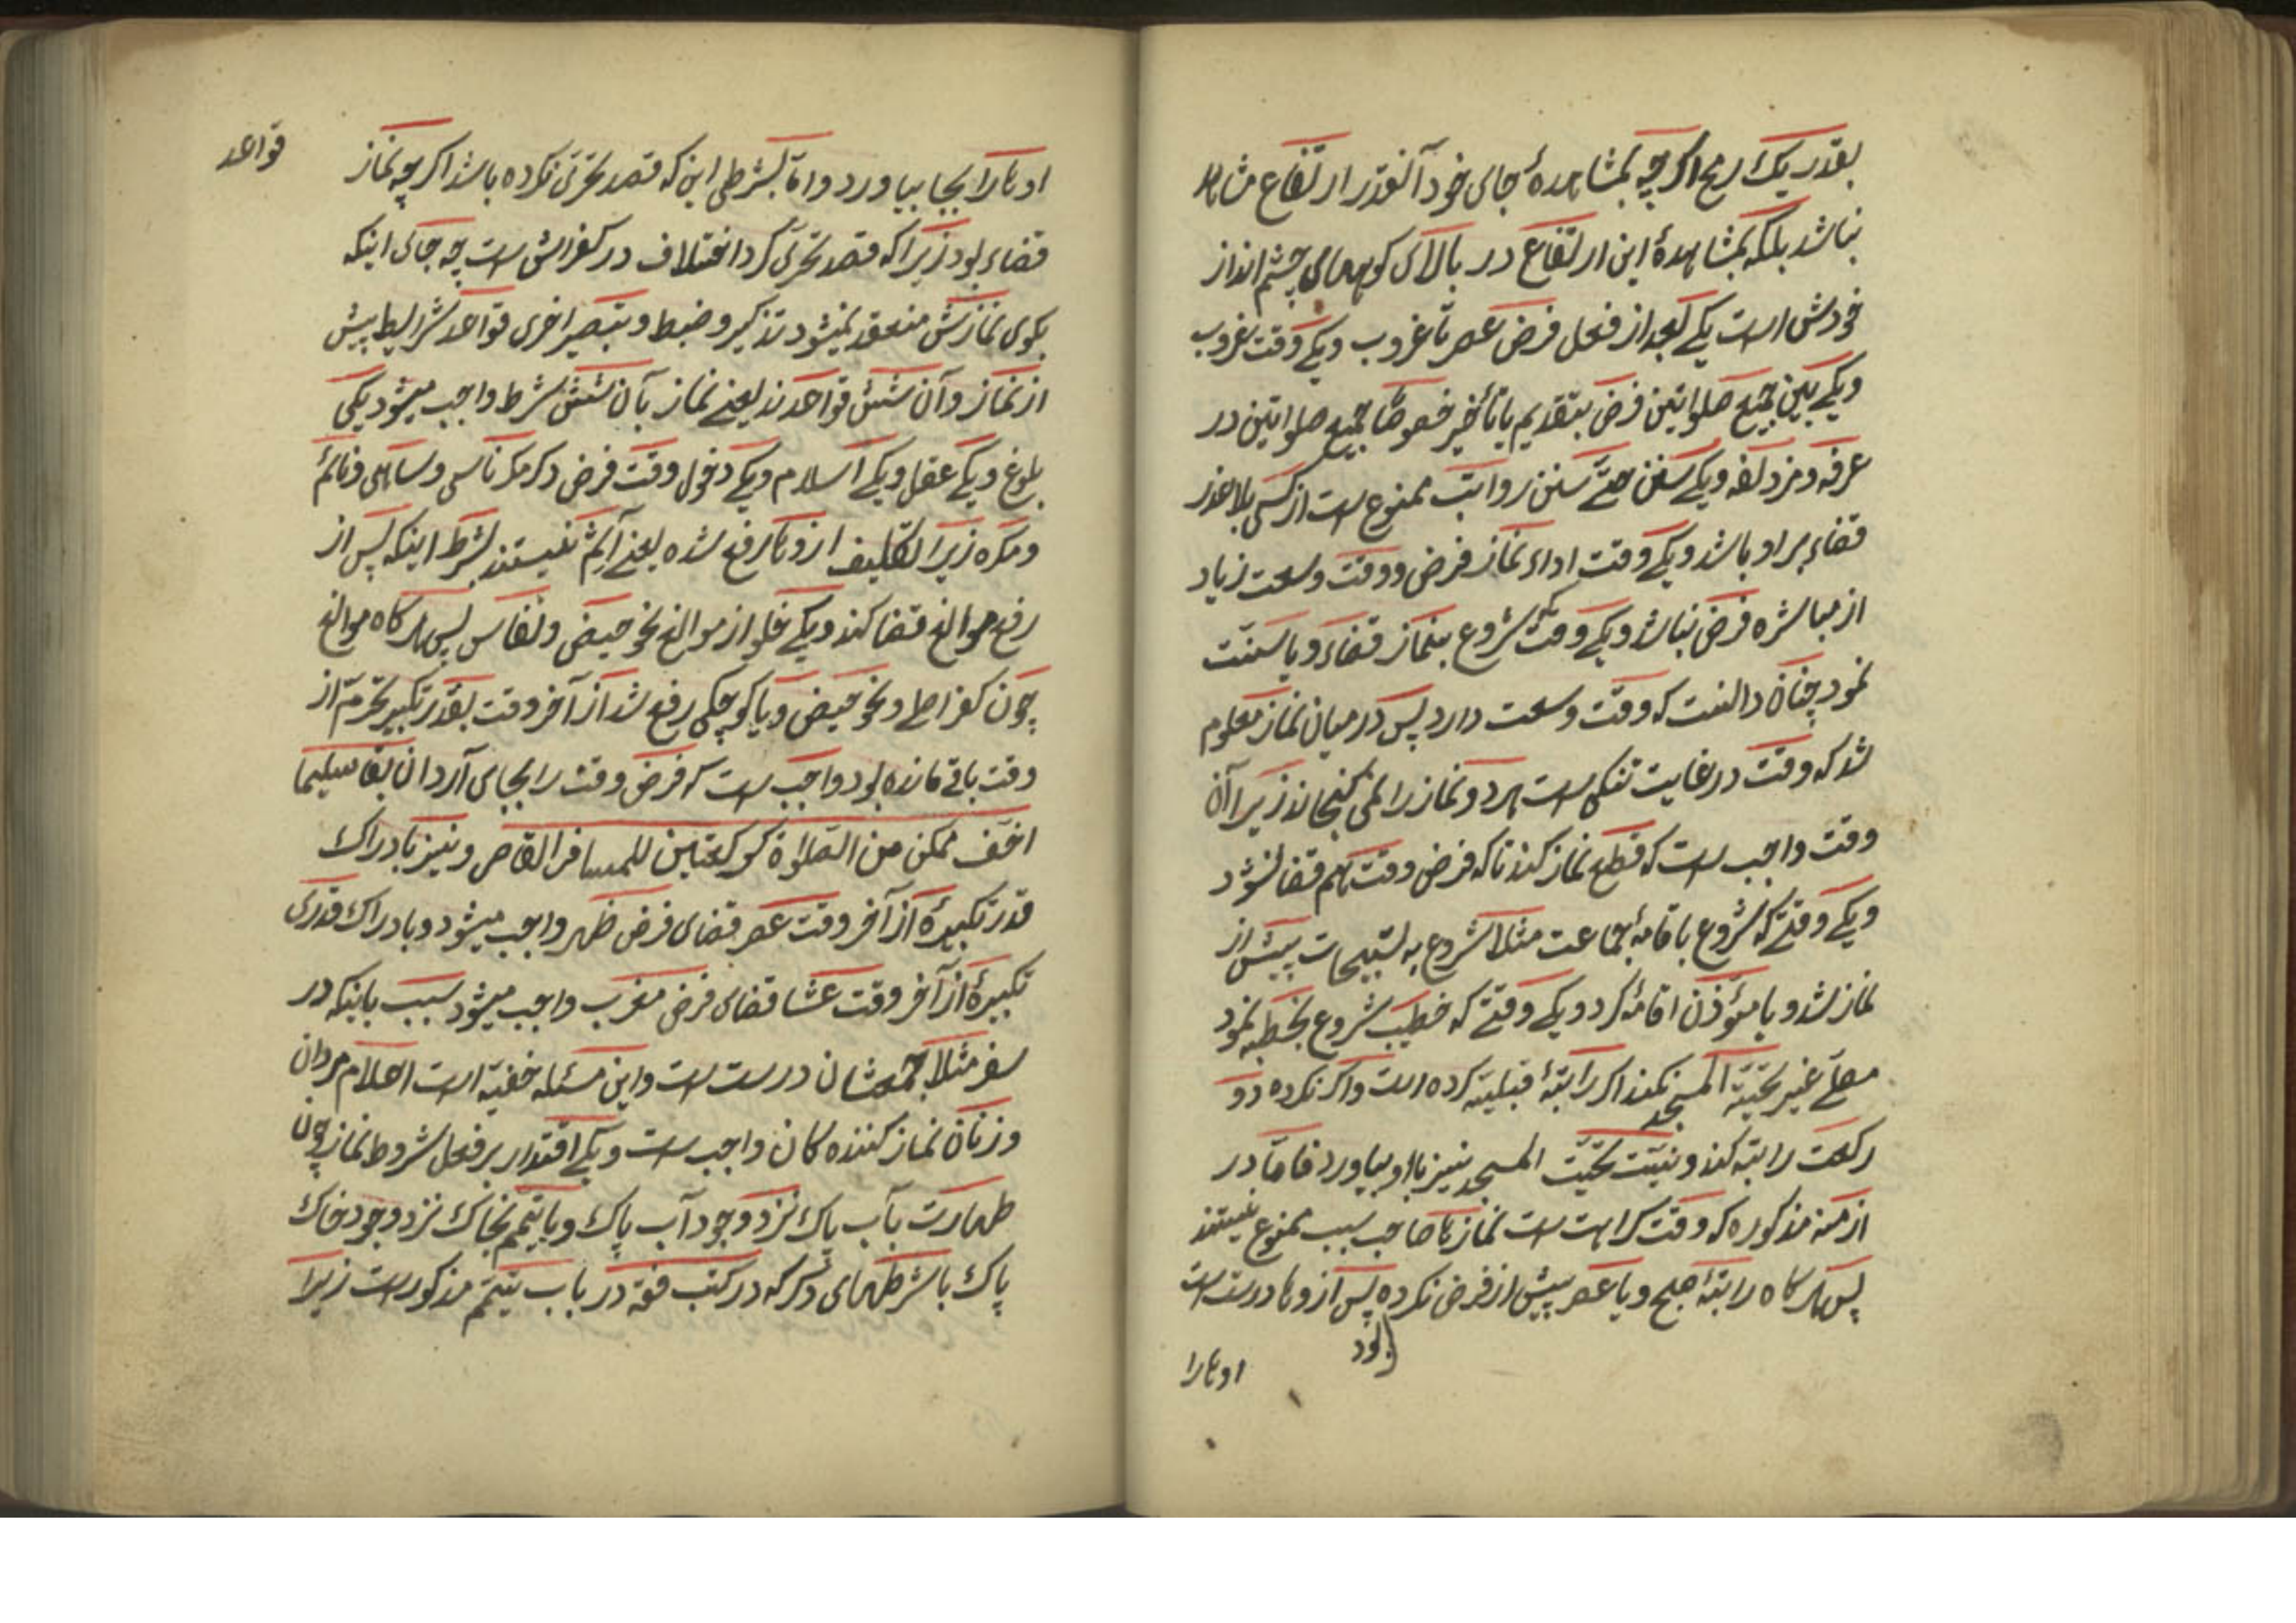 بقدر یک رمح اگر چه بمشاهدهٔ جای خود آنقدر ارتفاع مشاهد
نباشد بلکه بمشاهدهٔ این ارتفاع در بالای کوههای چشم انداز
خودش است یکی بعد از فعل فرض عصر تا غروب ویکی وقت غروب
ویکی بین جمع صلواتین فرض بتقدیم یا تأخیر خصوصًا جمع صلواتین در
عرفه و مزدلفه ویکی سنن حتّے سنن رواتب ممنوع است از کسی بلا عذر
قضاء بر او باشد ویکی وقت اداء نماز فرض ووقت وسعت زیاد
از مباشره فرض نباشد ویکی وقت شروع بنماز قضاء ویا سنّت
نمود چنان دانست که وقت وسعت دارد پس در میان نماز معلوم
شد که وقت در غایت تنگی است هر دو نماز را نمی گنجاند زیرا آن
وقت واجب است که قطع نماز کند تا که فرض وقت هم قضا نشود
ویکی وقتے که شروع باقامهٔ جماعت مثلا شروع به تسبیحات پیش از
نماز شد ویا مؤذن اقامهٔ کرد ویکی وقتے که خطیب شروع بخطبه نمود
مصلّے غیر تحیّة المسجد نکند اگر راتبهٔ قبلیّه کرده است واگر نکرده دو
رکعت راتبه کند و نیّت تحیّت المسجد نیز با او بیاورد فامّا در
ازمنه مذکوره که وقت کراهت است نماز با صاحب سبب ممنوع نیستند
پس هرگاه راتبهٔ صبح ویا عصر پیش از فرض نکرده پس از وها درست است
بود
اوهارا
قواعد
اوهارا بجا بیاورد واما بشرطی این که قصد تحرّی نکرده باشد اگر چه نماز
قضاء بود زیرا که قصد تحرّی کرد اختلاف در کفرش است چه جای اینکه
بکوی نمازش منعقد نمیشود تذکیر وضبط و تبصیر اخری قواعد شرایط پیش
از نماز وآن شش قواعدند یعنے نماز بآن شش شرط واجب میشود یکی
بلوغ ویکی عقل ویکی اسلام ویکی دخول وقت فرض دکر مکر ناسی وساهی ونائم
ومکره زیرا تکلیف ازوها رفع شده یعنے آثم نیستند بشرط اینکه پس از
رفع موانع قضا کنند ویکی خلو از موانع نحو حیض ونفاس پس هرگاه موانع
چون کفر اصلی ونحو حیض ویا کوچکی رفع شد از آخر وقت بقدر تکبیر تحرّم از
وقت باقی مانده بود واجب است که فرض وقت را بجای آرد ان بقا سلیما
اخف ممکن من الصّلوة کرکعتین للمسافر القاصر ونیز بادراک
قدر تکبیرهٔ از آخر وقت عصر قضای فرض ظهر واجب میشود وبادراک قدری
تکبیرهٔ از آخر وقت عشا قضای فرض مغرب واجب میشود سبب باینکه در
سفر مثلا جمعشان درست است واین مسئله خفیّه است اعلام مردان
وزنان نماز کننده کان واجب است ویکی اقتدار بر فعل شروط نماز چون
طهارت بآب پاک نزد وجود آب پاک ویا تیمّم بخاک نزد وجود خاک
پاک با شرطهای دکر که در کتب فقه در باب تیمّم مذکور است زیرا